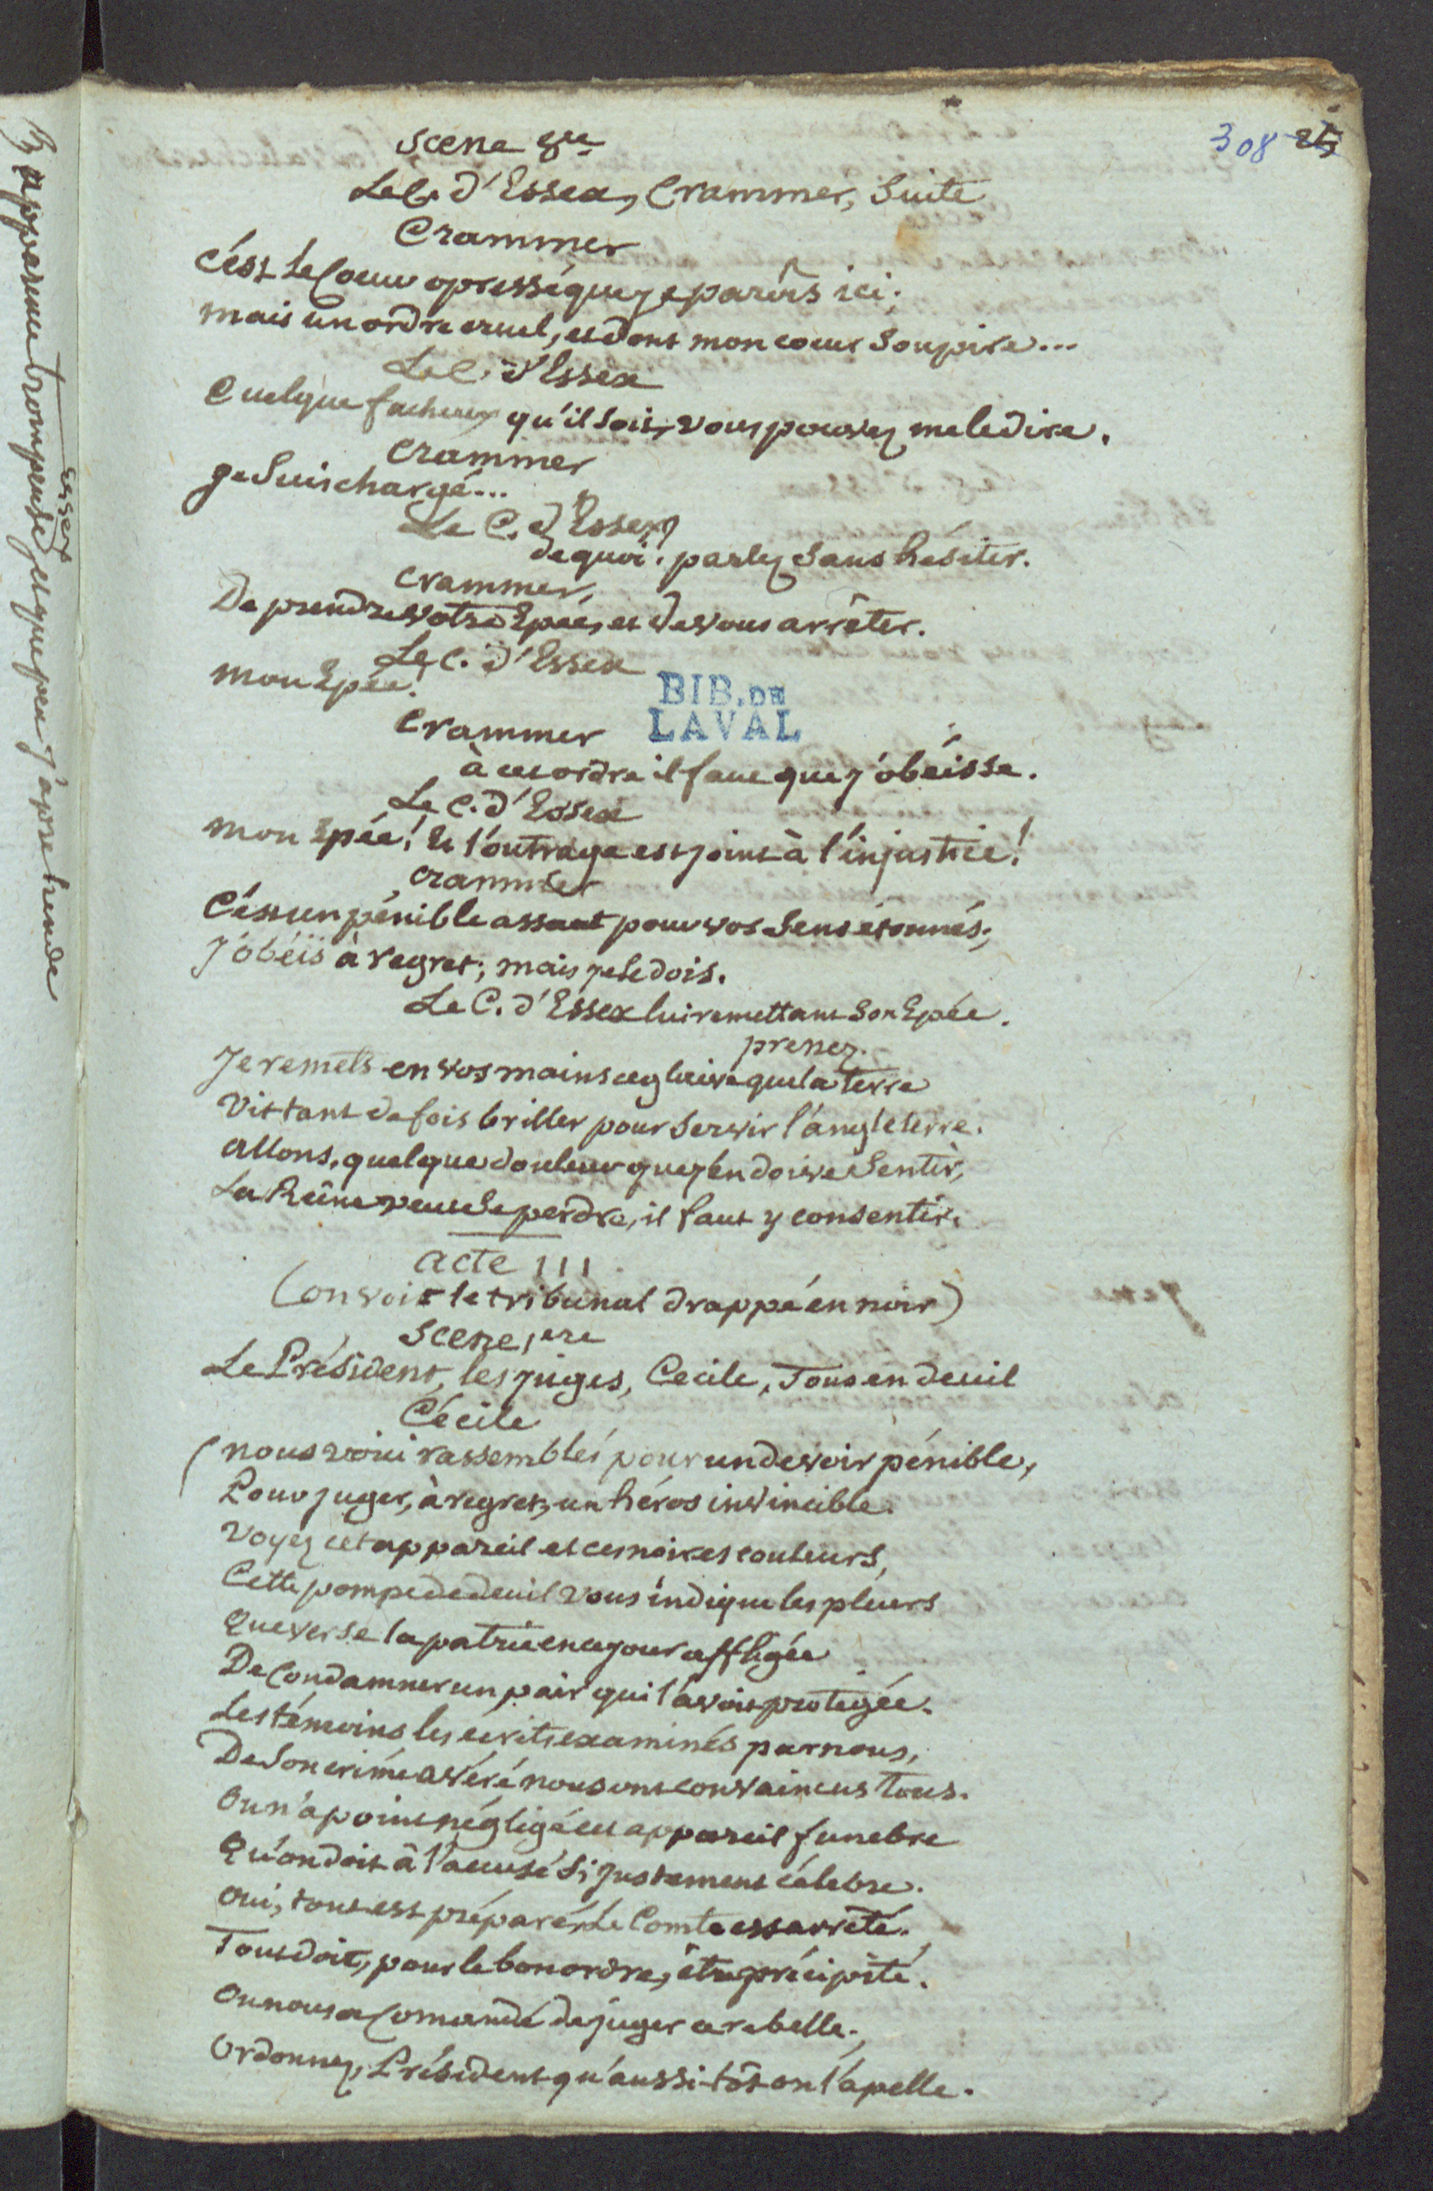 308 25
Scene 8me
Le C. d'Essex, Crammer, Suite
Crammer
C'ést Le Coeur opressé que je parois ici;
mais un ordre cruel, et dont mon coeur Soupire...
Le C. d'Essex
Quelque facheux qu'il Soit, vous pouvez me le dire.
Crammer
je Suis chargé...
Le C. d'Essex
de quoi! parlez Sans héSiter.
Crammer,
De prendre votre Epée, et de vous arrêter.
Le C. d'Essex
mon Epée!
BIB. DE
LAVAL
Crammer
à cet ordre il faut que j'obéisse.
Le C. d'Essex
mon Epée! Et l'outrage est joint à l'injustice!
Crammer
C'ést un pénible assaut pour vos Sens étonnés;
J'obéïs à regret; mais je le dois.
Le C. d'Essex lui remettant Son Epée.
prenez.
Je remets en vos mains ce glaive que la Terre
Vit tant de fois briller pour Servir l'angleterre.
Allons, quelque douleur que j'en doive Sentir,
La Reine veut Se perdre, il faut y consentir.
Acte III
(on voit le tribunal drappé en noir)
Scene 1ere
Le Président, les juges, Cecile, Tous en deuil
Cécile
(nous voici rassemblés pour un devoir pénible,
Pour juger, à regret, un héros invincible.
Voyez cet appareil et ces noires couleurs,
Cette pompe de deuil vous indique les pleurs
Que verse la patrie en ce jour affligée
De Condamner un pair qui l'avoit protégée.
Les témoins les ecrits examinés par nous,
De Son crime avéré nous ont convaincus Tous.
On n'a point négligé cet appareil funebre
Qu'on doit à l'accusé Si justement célebre.
Oui, tout est préparé, Le Comte est arrêté.
Tout doit, pour le bon ordre, être précipité.
On nous a Comandé de juger ce rebelle.
Ordonnez, Président qu'aussi-tôt on l'apelle.
apparence trompeuse, et que peu j'aprehende
Essex